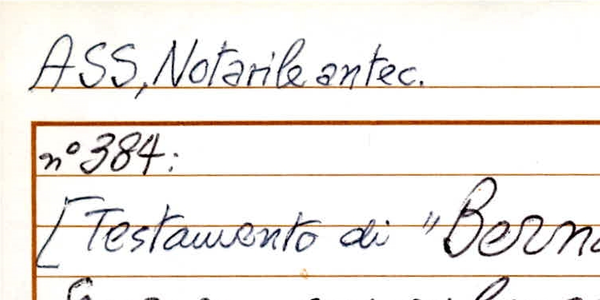 ASS, Notarile antec.
n° 384:
[Testamento di "Bern